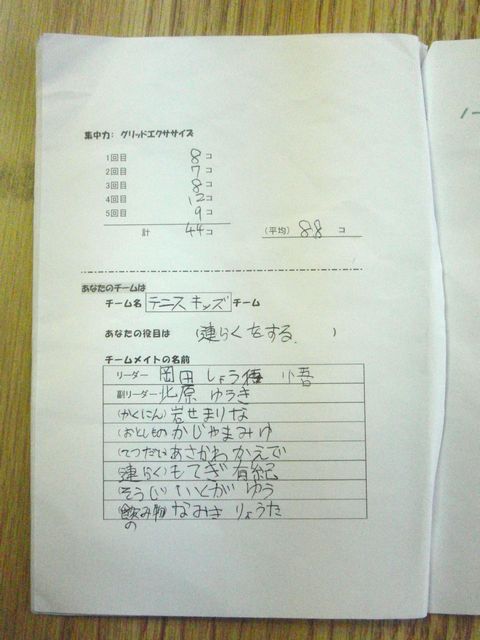 集中力: グリッドエクササイズ
1回目 8コ
2回目 7コ
3回目 8コ
4回目 12コ
5回目 9コ
計 44コ (平均) 8.8 コ
あなたのチームは
チーム名 テニスキッズ チーム
あなたの役目は (連らくをする )
チームメイトの名前
リーダー 岡田 しょう
副リーダー 北原 ゆうき
(かくにん) 岩せまりな
(おとしもの かじゃまみゆ
(てつだい あさかわ かえで
(連らく) もてぎ 有紀
(そうじ いくが ゆう
(飲み物) なみき りょうた
の